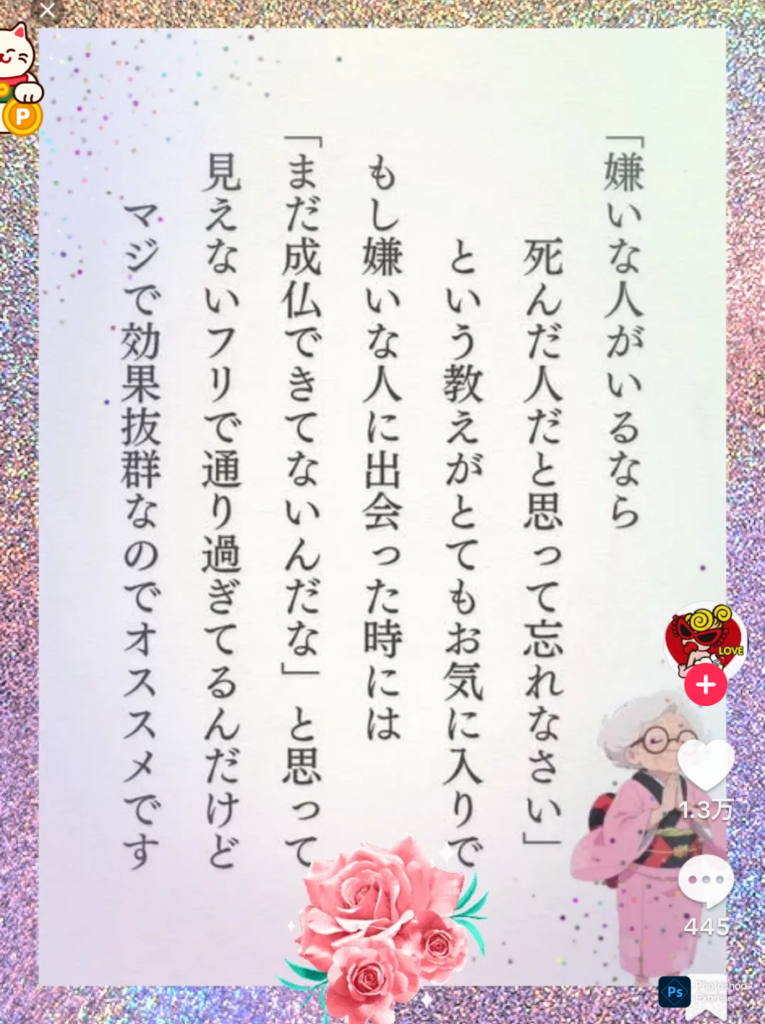 「嫌いな人がいるなら
死んだ人だと思って忘れなさい」
という教えがとてもお気に入りで
もし嫌いな人に出会った時には
「まだ成仏できてないんだな」と思って
見えないフリで通り過ぎてるんだけど
マジで効果抜群なのでオススメです
P
LOVE
1.3万
445
Ps
Photoshop
Express